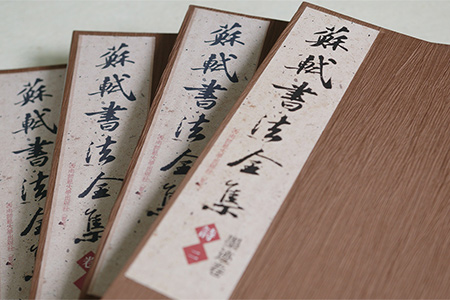 蘇軾書法全
蘇軾書法全集
蘇軾書法全集
蘇軾書法全集
墨迹卷
二